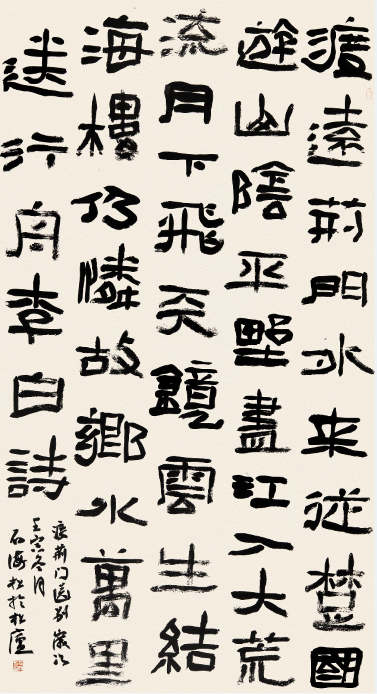 渡遠荊門外来従楚國
遊山陰平野盡江入大荒
流月下飛天鏡雲生結
海樓仍憐故鄉水萬里
送行舟李白詩
渡荆门送别歲次
壬寅冬月
石海松於松廬